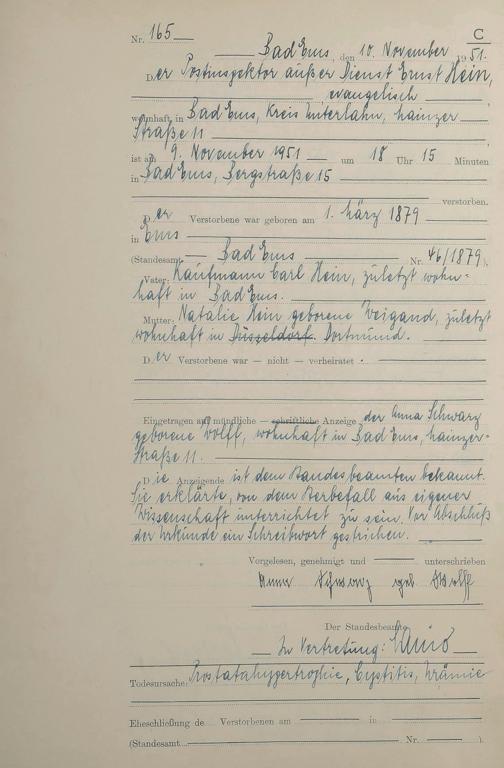 C
Nr. 165
Bad Ems, den 10. November 1951.
Der Postinspektor außer Dienst Ernst Hein,
evangelisch
wohnhaft in Bad Ems, Kreis Unterlahn, Mainzer
Straße 11
ist am 9. November 1951 um 18 Uhr 15 Minuten
in Bad Ems, Bergstraße 15
verstorben.
Der Verstorbene war geboren am 1. März 1879
in Ems
(Standesamt Bad Ems Nr. 46/1879).
Vater: Kaufmann Carl Hein, zuletzt wohn-
haft in Bad Ems.
Mutter: Natalie Hein geborene Weigand, zuletzt
wohnhaft in Düsseldorf. Dortmund.
Der Verstorbene war — nicht — verheiratet.
Eingetragen auf mündliche — schriftliche Anzeige der Anna Schwarz
geborene Wolff, wohnhaft in Bad Ems, Mainzer-
Straße 11.
Die Anzeigende ist dem Standesbeamten bekannt.
Sie erklärte, von dem Sterbefall aus eigener
Wissenschaft unterrichtet zu sein. Vor Abschluß
der Urkunde ein Schreibwort gestrichen.
Vorgelesen, genehmigt und unterschrieben
Anna Schwarz geb. Wolff
Der Standesbeamte
In Vertretung:
Todesursache: Prostatahypertrophie, Cystitis, Urämie
Eheschließung de Verstorbenen am in
(Standesamt Nr. ).